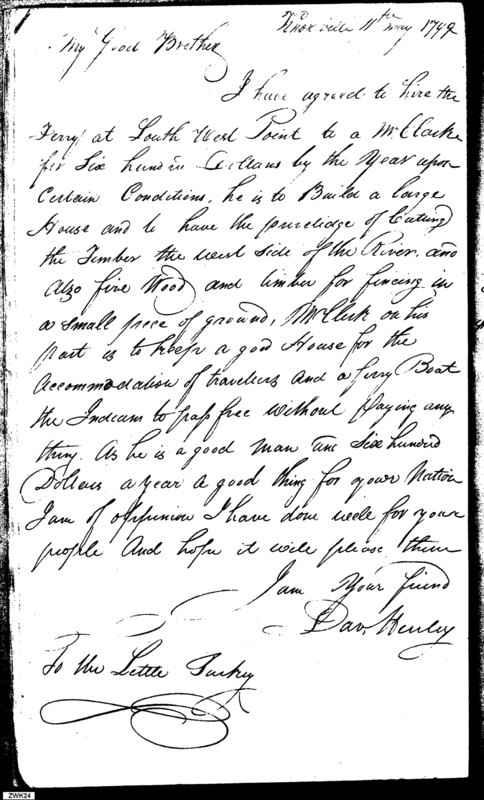 Knoxville 11th may 1799
My Good Brother
I have agreed to hire the
Ferry at South West Point to a Mr. Clark
for Six hundred Dollars by the Year upon
Certain Conditions, he is to Build a large
House and to have the priveledge of Cutting
the Timber the west side of the River, and
also fire Wood and timber for fencing in
a small piece of ground, Mr Clark on his
part is to keep a good House for the
Accommodation of travelers and a ferry Boat
the Indians to pass free without paying any
thing. As he is a good man and Six hundred
Dollars a year a good thing for your Nation
I am of oppinion I have done well for your
people And hope it will please them
I am Your friend
Dav. Henley
To the Little Turkey
ZWK24